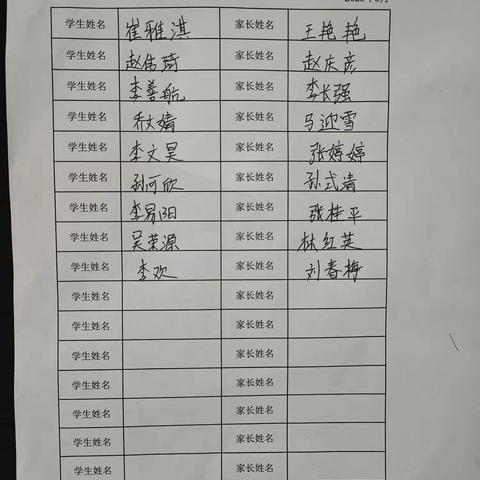 学生姓名 崔雅淇 家长姓名 王艳艳
学生姓名 赵伟琦 家长姓名 赵庆彦
学生姓名 李善航 家长姓名 李长强
学生姓名 乔文婧 家长姓名 马迎雪
学生姓名 李文昊 家长姓名 张婷婷
学生姓名 孙可欣 家长姓名 孙式清
学生姓名 李昂阳 家长姓名 张桂平
学生姓名 吴荣源 家长姓名 林红英
学生姓名 李欢 家长姓名 刘春梅
学生姓名 家长姓名
学生姓名 家长姓名
学生姓名 家长姓名
学生姓名 家长姓名
学生姓名 家长姓名
学生姓名 家长姓名
学生姓名 家长姓名